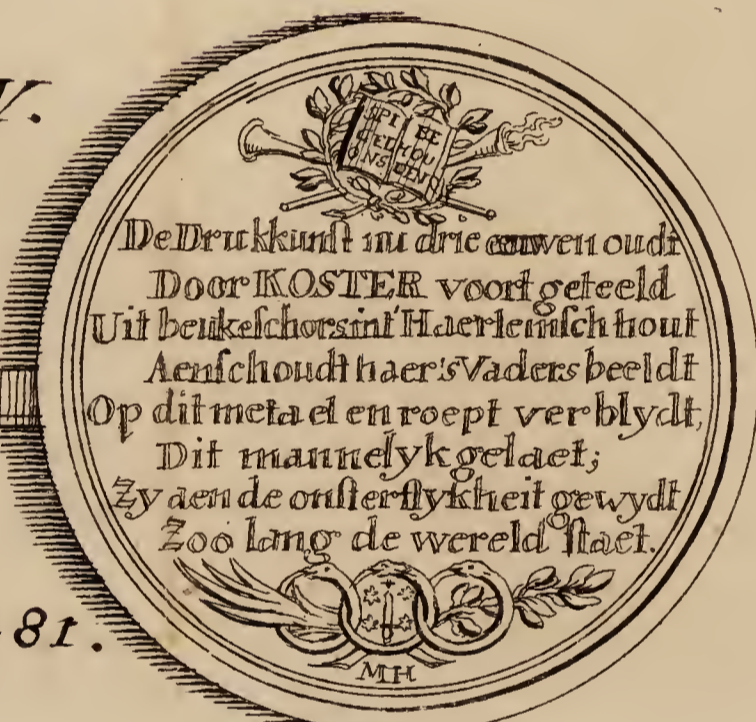 V.
SPI BE
GEL HOU
ONS DENIS
De Drukkunſt nu drie eeuwen oudt
Door KOSTER voort geteeld
Uit beukeſchors int' Haerlemſch hout
Aenſchoudt haer's Vaders beeldt
Op dit metael en roept verblydt,
Dit mannelyk gelaet;
Zy aen de onſterflykheit gewydt
Zoo lang de wereld ſtaet.
MH
81.